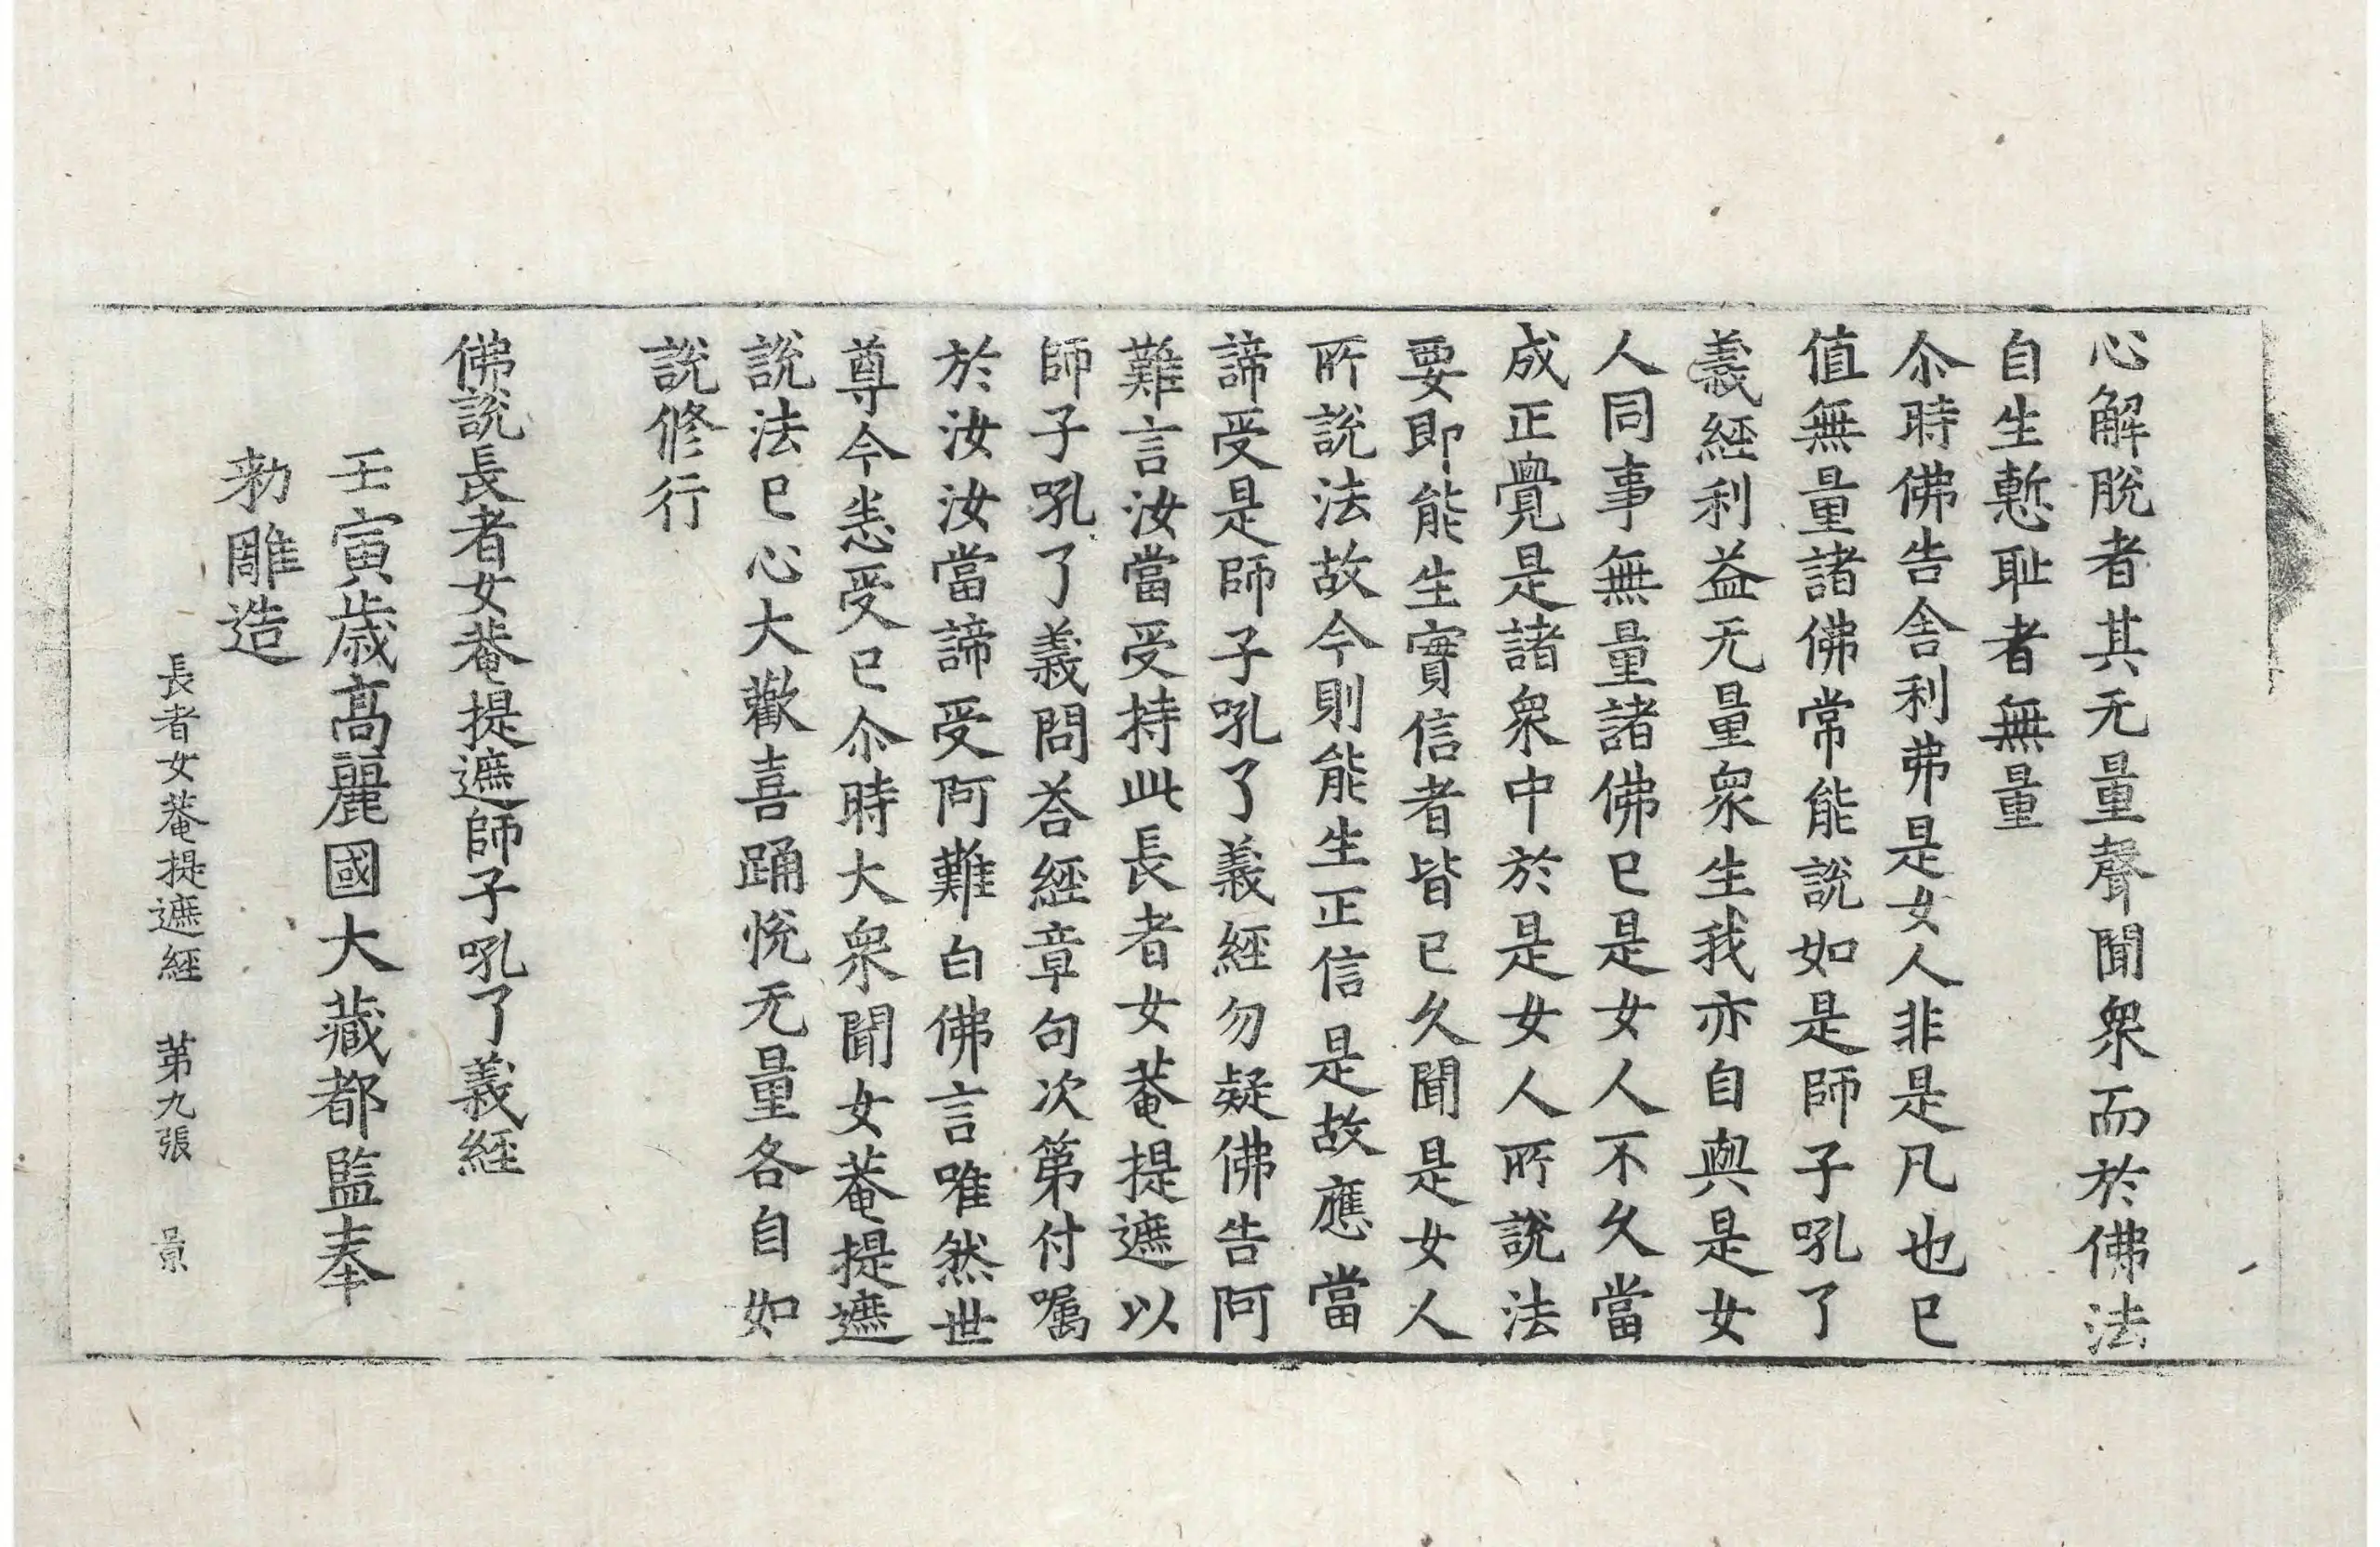 心解脫者其无量聲聞衆而於佛法
自生慙耻者無量
尒時佛告舎利弗是女人非是凡也已
值無量諸佛常能說如是師子吼了
義經利益无量衆生我亦自與是女
人同事無量諸佛已是女人不久當
成正覺是諸衆中於是女人所說法
要即能生實信者皆已久聞是女人
所說法故今則能生正信是故應當
諦受是師子吼了義經勿疑佛告阿
難言汝當受持此長者女菴提遮以
師子吼了義問荅經章句次第付嘱
於汝汝當諦受阿難白佛言唯然世
尊今恙受已尒時大衆聞女菴提遮
說法已心大歡喜踊悅无量各自如
說修行
佛說長者女菴提遮師子吼了義經
壬寅歳高麗國大藏都監奉
勑雕造
長者女菴提遮經 第九張 景